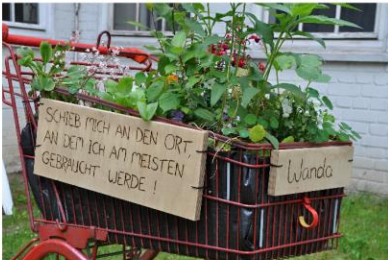 SCHIEB MICH AN DEN ORT,
AN DEM ICH AM MEISTEN
GEBRAUCHT WERDE!
Wanda